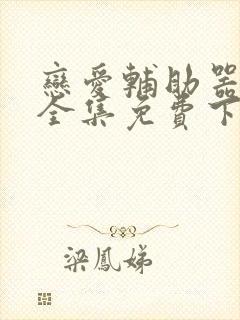 戀愛輔助器
全集免費下
梁鳳娣